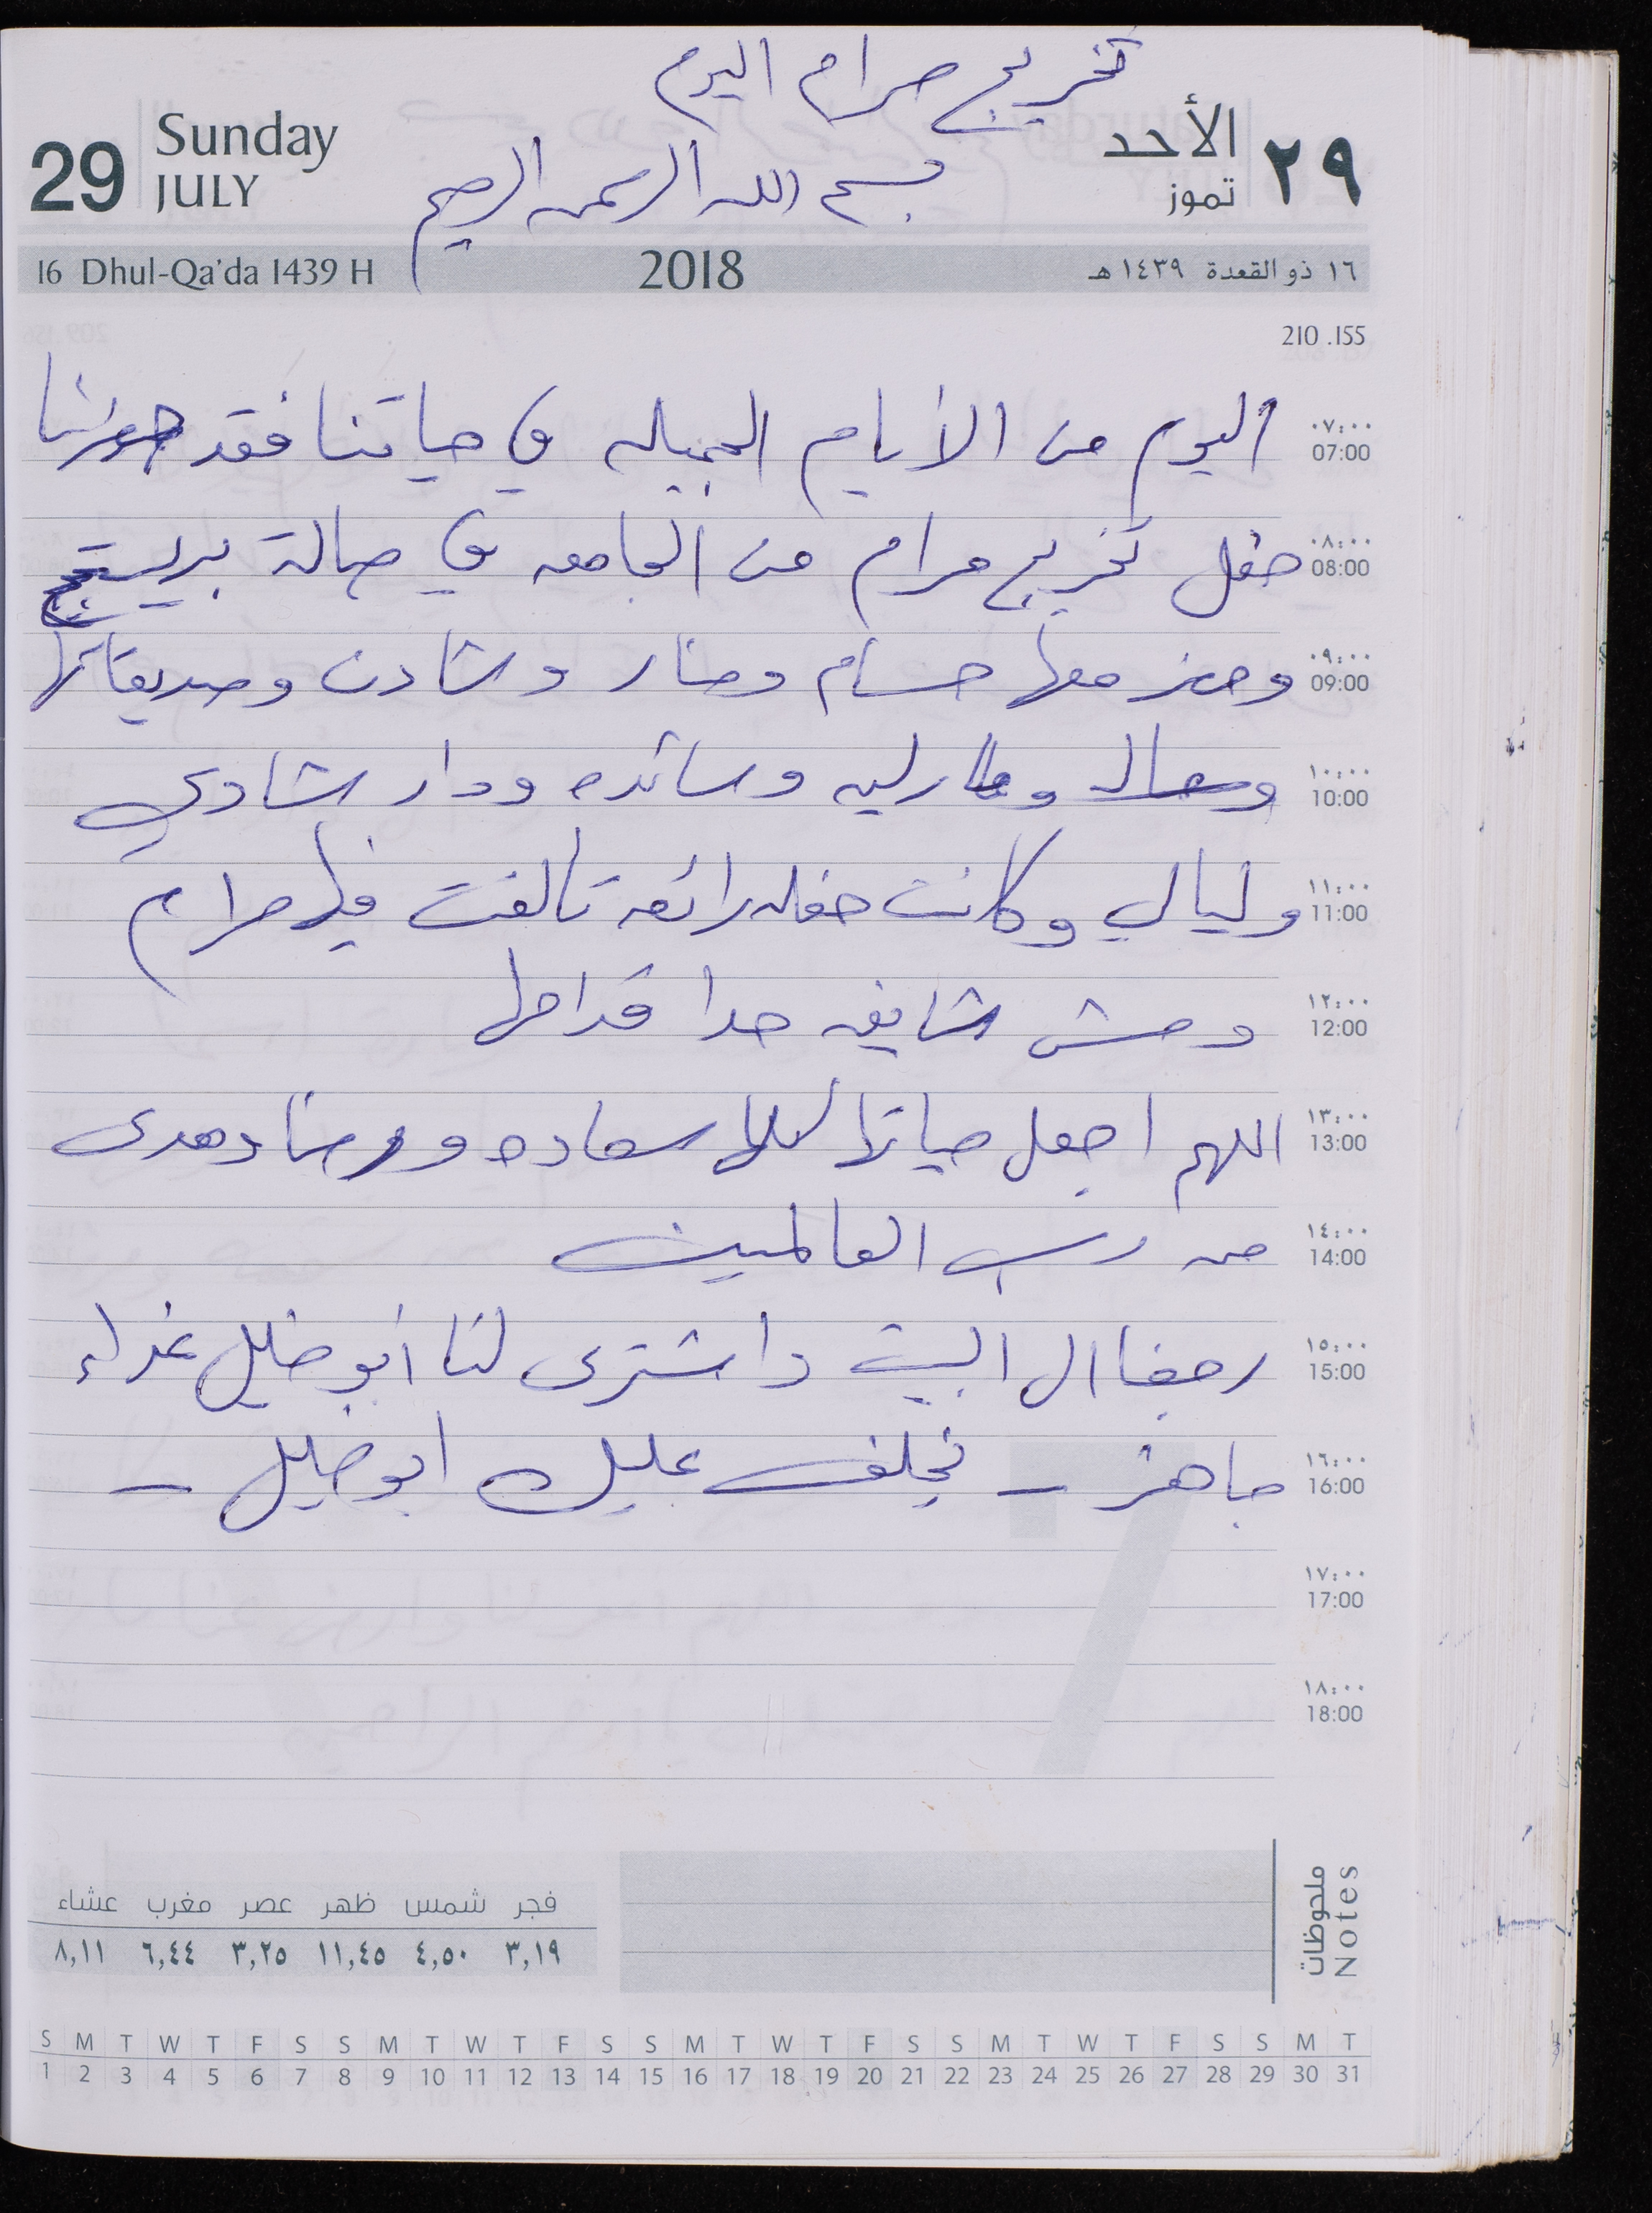 تخريج مرام اليوم
29 Sunday JULY
بسم الله الرحمن الرحيم
٢٩ الأحد تموز
16 Dhul-Qa'da 1439 H 2018 ١٦ ذو القعدة ١٤٣٩ هـ
210 .155
٠٧:٠٠ 07:00 اليوم من الأيام الجميله في حياتنا فقد حضرنا
٠٨:٠٠ 08:00 حفل تخريج مرام من الجامعه في صالة بريستج
٠٩:٠٠ 09:00 وحضر معها حسام ومنار وشادن وصديقاتها
١٠:٠٠ 10:00 ودار شادي
١١:٠٠ 11:00 وليالي وكانت حفله رائعة تالقت فيها مرام
١٢:٠٠ 12:00 ومش شايفه حدا قدامها
١٣:٠٠ 13:00 اللهم اجعل حياتها كلها سعاده ورضا وهدى
١٤:٠٠ 14:00 من رب العالمين
١٥:٠٠ 15:00 رجعنا الى البيت واشترى لنا أبو خليل غداء
١٦:٠٠ 16:00 جاهز - يخلف عليك ابو خليل -
١٧:٠٠ 17:00
١٨:٠٠ 18:00
ملحوظات Notes
فجر شمس ظهر عصر مغرب عشاء
٣,١٩ ٤,٥٠ ١١,٤٥ ٣,٢٥ ٦,٤٤ ٨,١١
S M T W T F S S M T W T F S S M T W T F S S M T W T F S S M T
1 2 3 4 5 6 7 8 9 10 11 12 13 14 15 16 17 18 19 20 21 22 23 24 25 26 27 28 29 30 31